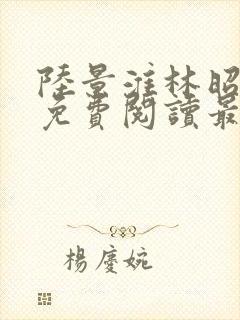 陸景淮林昭
免費閱讀最
楊慶婉